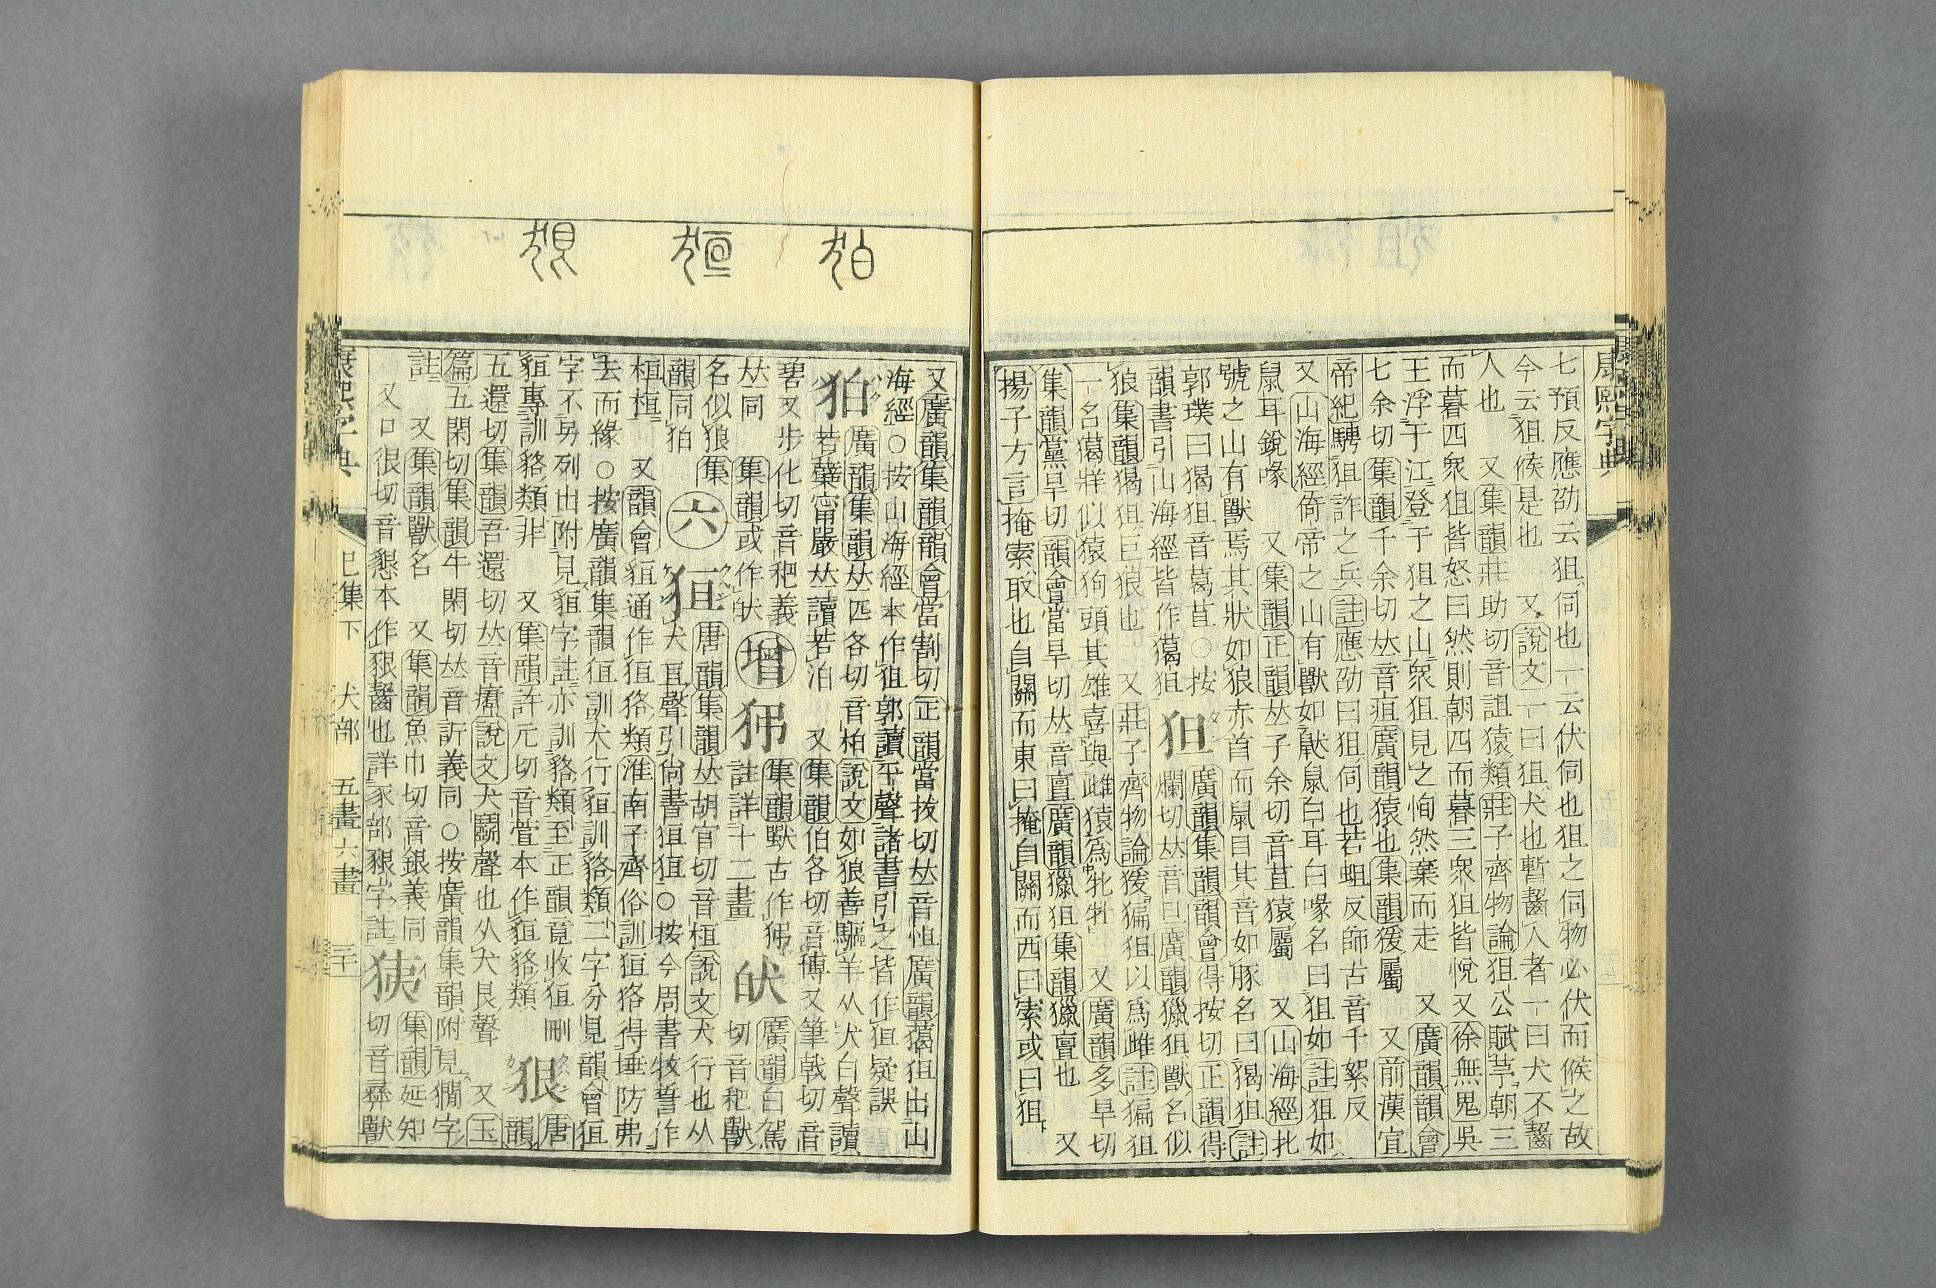 康熙字典
七預反應劭云狙伺也一云伏伺也狙之伺物必伏而候之故
今云狙候是也 又說文一曰狙犬也暫齧人者一曰犬不齧
人也 又集韻莊助切音詛猿類莊子齊物論狙公賦芧朝三
而暮四眾狙皆怒曰然則朝四而暮三眾狙皆悅又徐無鬼吳
王浮于江登于狙之山眾狙見之恂然棄而走 又廣韻韻會
七余切集韻千余切𠀤音疽廣韻猿也集韻猨屬 又前漢宣
帝紀騁狙詐之兵註應劭曰狙伺也若蛆反師古音千絮反
又山海經倚帝之山有獸如鼣鼠白耳白喙名曰狙如註狙如
鼠耳銳喙 又集韻正韻𠀤子余切音苴猿屬 又山海經北
號之山有獸焉其狀如狼赤首而鼠目其音如豚名曰猲狙註
郭璞曰猲狙音葛苴○按
狚 廣韻集韻韻會得按切正韻得
韻書引山海經皆作獦狚
爛切𠀤音旦廣韻獵狚獸名似
狼集韻猲狚巨狼也 又莊子齊物論猨猵狙以爲雌註猵狙
一名獦牂似猿狗頭其雄喜與雌猿爲牝牡 又廣韻多旱切
集韻黨旱切韻會當旱切𠀤音亶廣韻獵狚集韻獵亶也 又
揚子方言掩索取也自關而東曰掩自關而西曰索或曰狙
又廣韻集韻韻會當割切正韻當拔切𠀤音怛廣韻獦狚出山
海經○按山海經本作狙郭讀平聲諸書引之皆作狚疑誤
狛 廣韻集韻𠀤匹各切音粕說文如狼善驅羊从犬白聲讀
若蘗甯嚴𠀤讀若泊 又集韻伯各切音博又筆戟切音
碧又步化切音䎱義
𠀤同
增
集韻獸古作
註詳十二畫
廣韻白駕
切音䎱獸
名似狼
集
韻同狛
六
狟 唐韻集韻𠀤胡官切音桓說文犬行也从
犬亘聲引尚書狟狟○按今周書牧誓作
桓桓 又韻會貆通作狟狢類淮南子齊俗訓狟狢得埵防弗
去而緣○按廣韻集韻狟訓犬行貆訓貉類二字分見韻會狟
字不另列出附見貆字註亦訓貉類至正韻竟收狟刪
貆專訓貉類非 又集韻許元切音萱本作貆貉類
狠 唐
韻
五還切集韻吾還切𠀤音㾌說文犬鬭聲也从犬艮聲 又玉
篇五閑切集韻牛閑切𠀤音訢義同○按廣韻集韻附見㹞字
註 又集韻獸名 又集韻魚巾切音銀義同
又口很切音懇本作豤齧也詳豕部豤字註
㹫 集韻延知
切音彞獸
康熙字典
巳集下 犬部 五畫六畫 三十